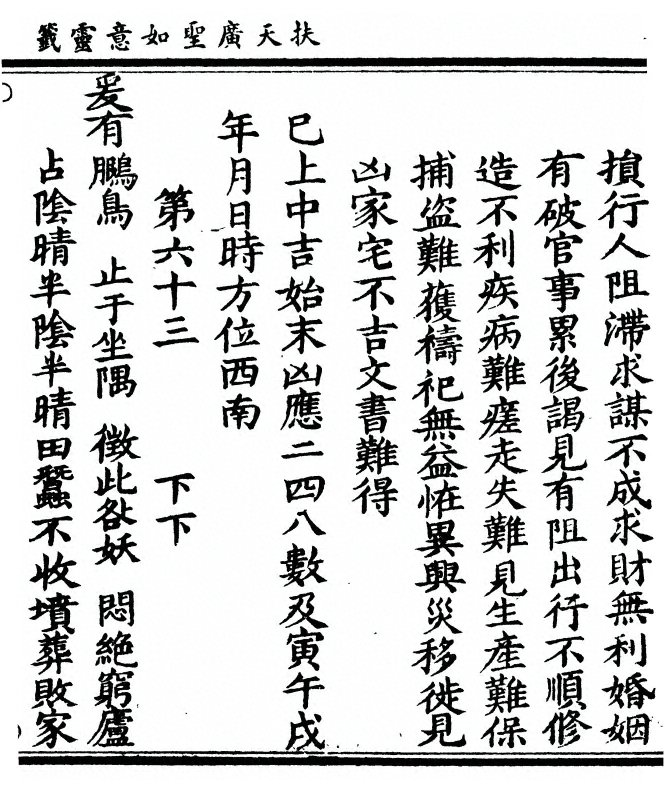 扶天廣聖如意靈籤
損行人阻滯求謀不成求財無利婚姻
有破官事累後謁見有阻出行不順修
造不利疾病難瘥走失難見生產難保
捕盜難獲禱祀無益怪異興災移徙見
凶家宅不吉文書難得
巳上中吉始末凶應二四八數及寅午戌
年月日時方位西南
第六十三 下下
爰有鵩鳥 止于坐隅 徵此咎妖 悶絕窮廬
占陰晴半陰半晴田蠶不收墳葬敗家